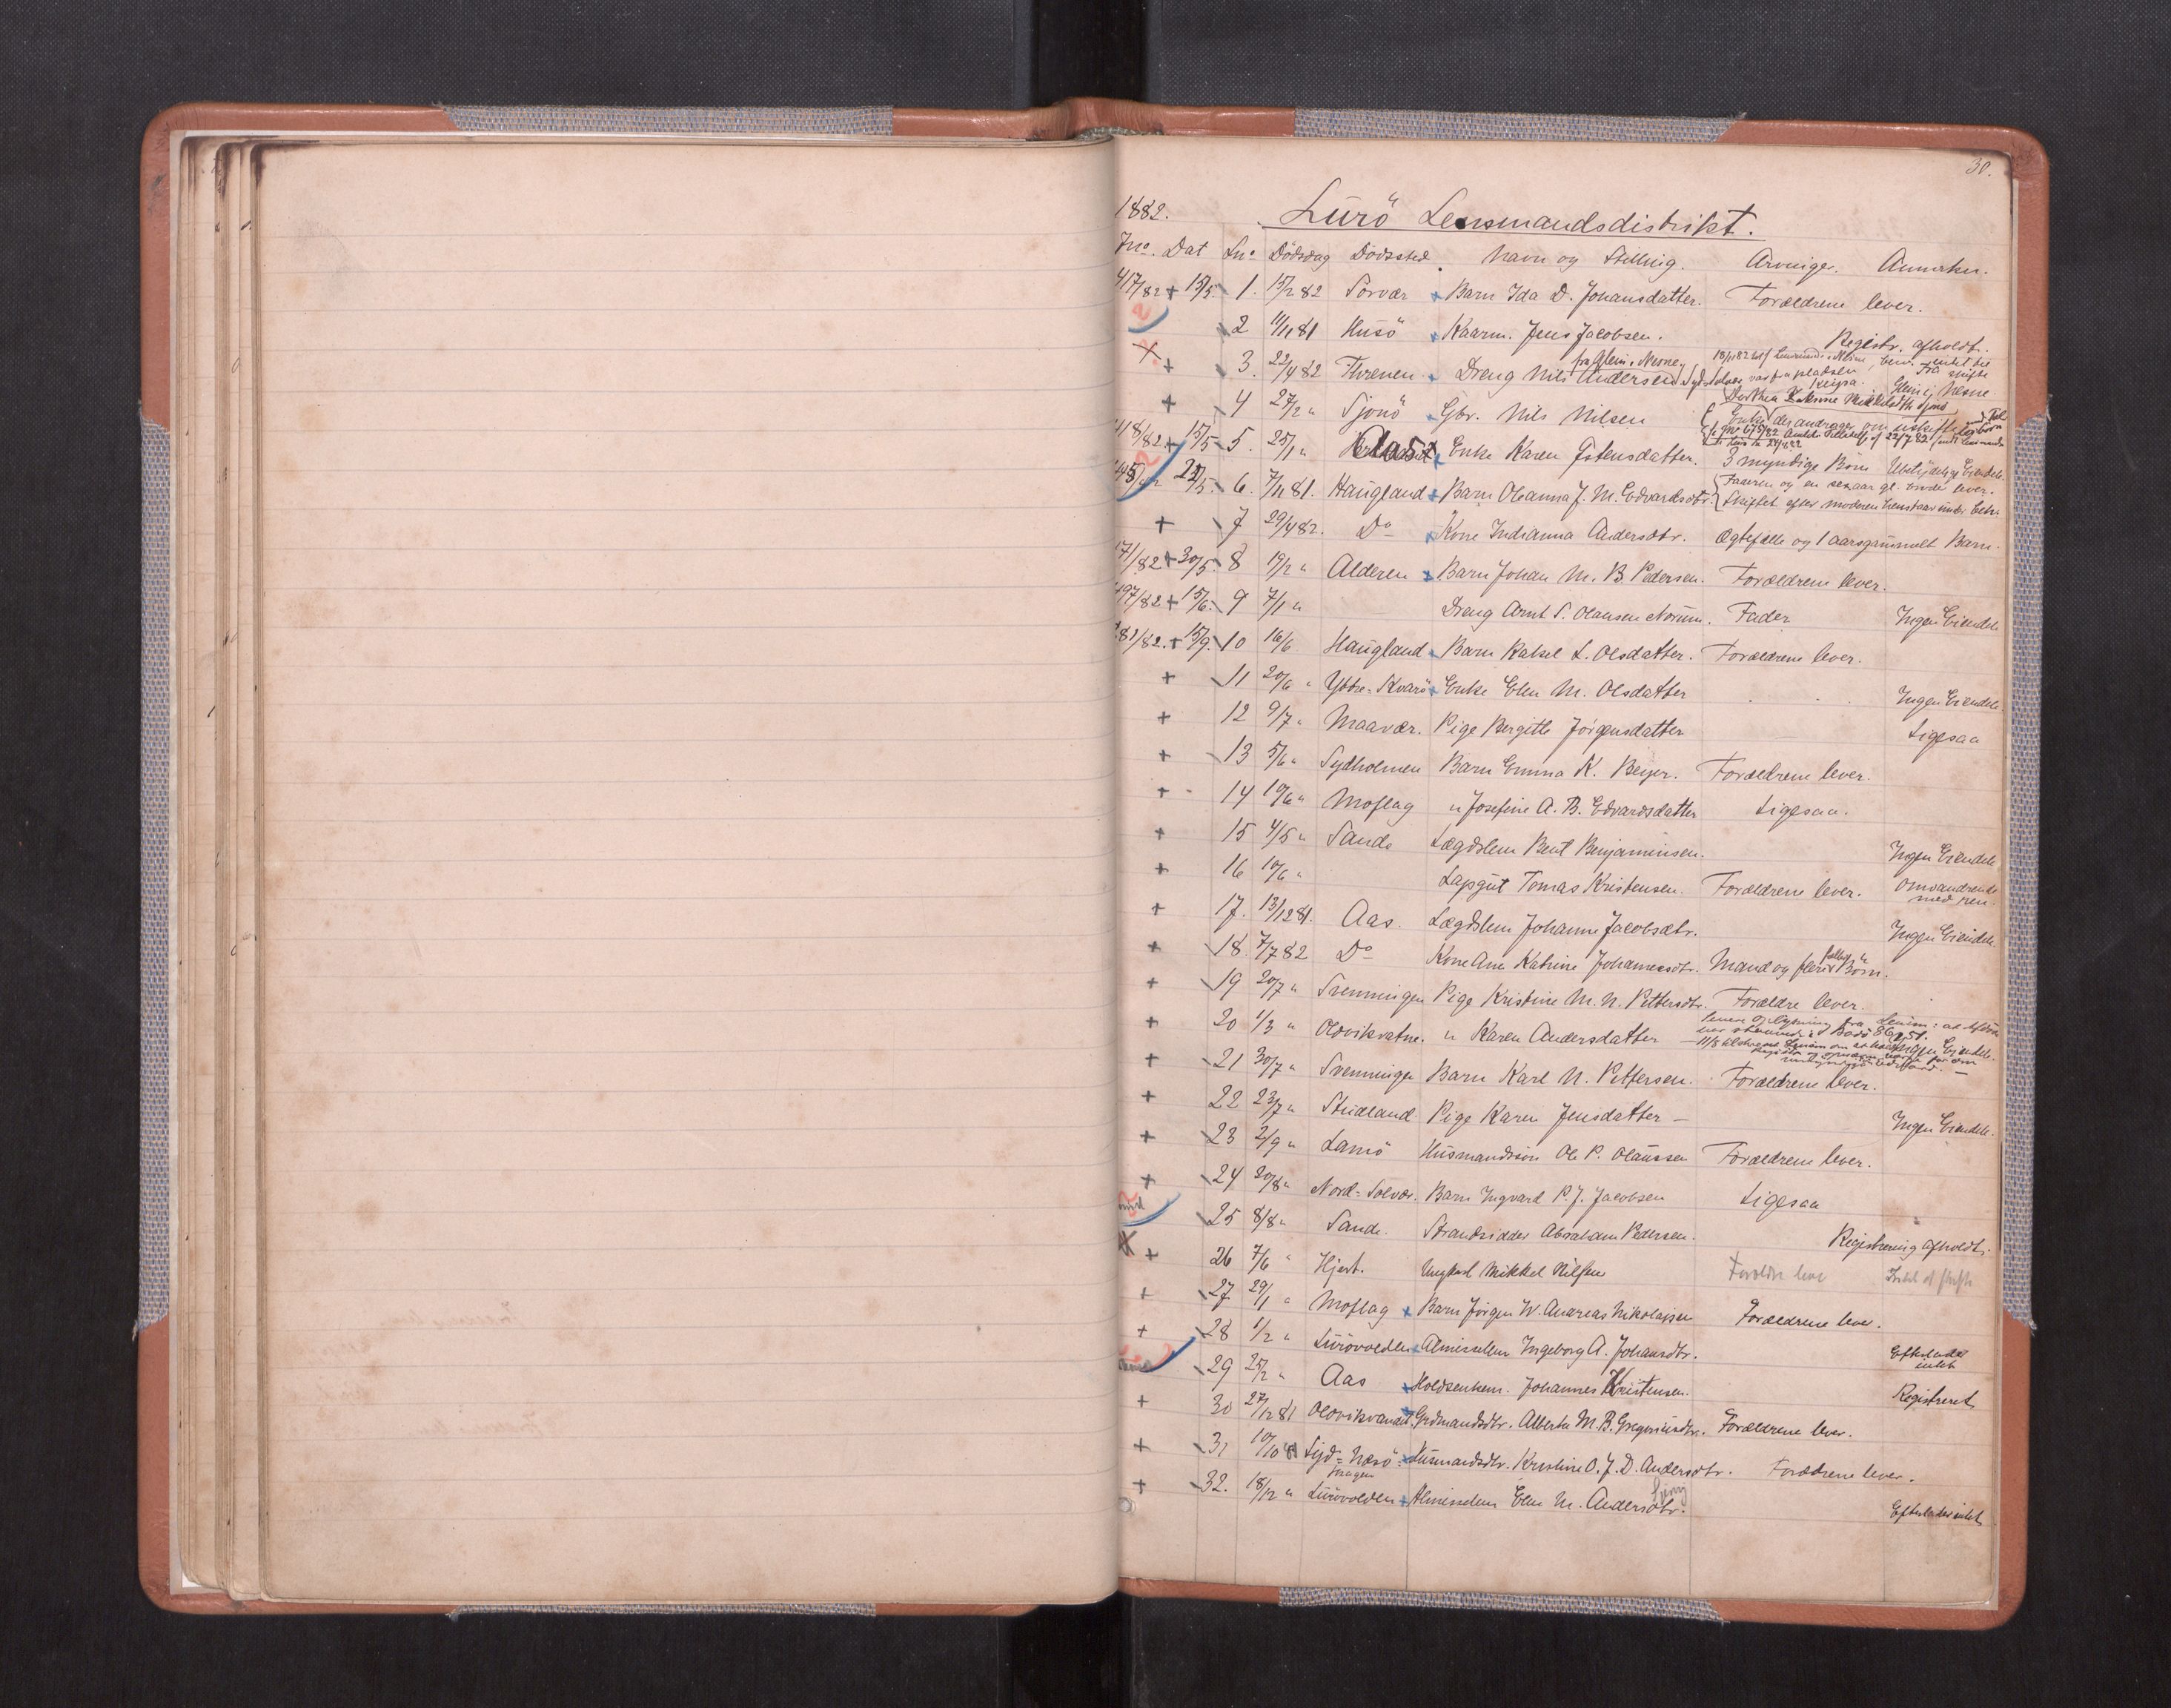 30.
1882. Lurö Lensmandsdistrikt.
Jno. Dat Lno Dödsdag Dödssted Navn og Stilling. Arvinger. Anmerkn.
417/82 + 15/5. 1. 15/2 82 Sorvær Barn Ida D. Johansdatter. Forældrene lever.
2 11/11 81 Husö Kaarm. Jens Jacobsen. Registr. afholdt.
+ 3. 22/4 82 Thrænen Dreng Nils Andersen
+ 4 27/2 " Sjonö Gbr. Nils Nilsen
418/82 + 15/5 5. 25/1 " Enke Karen Istensdatter. 3 myndige Börn
22/5. 6. 7/11 81. Haugland Barn Oleanna J. M. Edvardsdtr. Faderen og en sexaar gl. lever.
Skiftet efter moderen
+ 7 29/4 82. Do Kone Indianna Andersdtr. Ægtefælle og 1 aarsgammelt Barn.
71/82 + 30/5. 8 19/2 " Alderen Barn Johan M. B. Pedersen. Forældrene lever.
497/82 + 15/6. 9 7/1 " Dreng Arnt S. Olausen Norum. Fader Ingen Eiendele
+ 15/9. 10 16/6 Haugland Barn Rakel L. Olsdatter. Forældrene lever.
+ 11 20/6 " Yttre-Kvarö Enke Elen M. Olsdatter Ingen Eiendele.
+ 12 9/7 " Maavær. Pige Bergitte Jörgensdatter Ligesaa
+ 13 5/6 " Sydholmen Barn Emma K. Beyer. Forældrene lever.
+ 14 10/6 " Moflag " Josefine A. B. Edvardsdatter Ligesaa.
+ 15 4/5 " Sande Lægdslem Bent Benjaminsen. Ingen Eiendele
+ 16 10/6 " Lapgut Tomas Kristensen. Forældrene lever. Omvandrende
med ren.
+ 17. 13/12 81. Aas. Lægdslem Johanne Jacobsdtr. Ingen Eiendele
+ 18. 7/7 82 Do Kone Ane Katrine Johannesdtr. Mand og flere fælles Börn.
+ 19 20/7 " Svenningen Pige Kristine M. N. Pettersdtr. Forældre lever.
+ 20 1/3 " Oldvikvatne. " Karen Andersdatter Ingen Eiendele.
+ 21 30/7 " Svenningen Barn Karl N. Pettersen. Forældrene lever.
+ 22 23/7 " Studland. Pige Karen Jensdatter – Ingen Eiendele.
+ 23 2/9 " Lamö Husmandssön Ole P. Olaussen Forældrene lever.
+ 24 20/8 " Nord-Solvær. Barn Ingvard P. J. Jacobsen Ligesaa
25 8/8 " Sande. Strandsidder Abraham Pedersen. Registrering afholdt.
+ 26 7/6 " Hjart. Ungkarl Mikkel Nilsen Forældre lever
+ 27 29/1 " Moflag Barn Jörgen W. Andreas Nikolajsen Forældrene lever.
+ 28 1/2 " Lurövolden Almisselem Ingeborg A. Johansdtr. Efterlader
intet
29 25/2 " Aas Holdsenhem. Johannes Kristensen. Registreret
+ 30 27/12 81 Oldvikvandet. Grdmandsdtr. Alberta M. B. Gregoriusdtr. Forældrene lever.
+ 31 10/10 81 Syd-Næsö Husmandsdtr. Kristine O. J. D. Andersdtr. Forældrene lever.
+ 32. 18/12 " Lurövolden Almisselem Elen M. Andersdtr. Efterlader intet